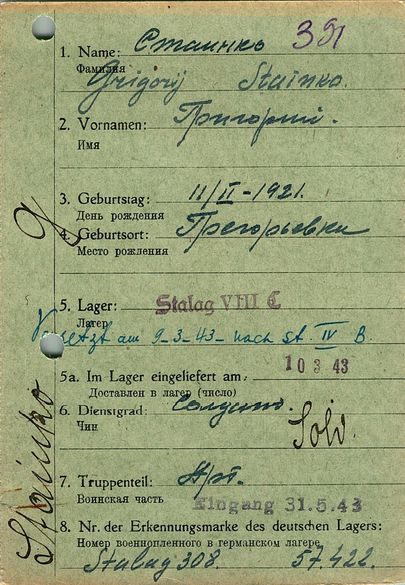 1. Name: Стаинко 391
Фамилия
Grigorij Stainko.
2. Vornamen: Григорий.
Имя
3. Geburtstag: 11/II-1921.
День рождения
4. Geburtsort: Грегорьевки
Место рождения
5. Lager: Stalag VIII C
Лагерь
Versetzt am 9-3-43- nach St. IV B.
10 3 43
5a. Im Lager eingeliefert am:
Доставлен в лагер (число)
6. Dienstgrad: Солдат.
Чин
Sold.
7. Truppenteil: Арт.
Воинская часть Eingang 31.5.43
8. Nr. der Erkennungsmarke des deutschen Lagers:
Номер военнопленного в германском лагере
Stalag 308. 57.422.
Stainko